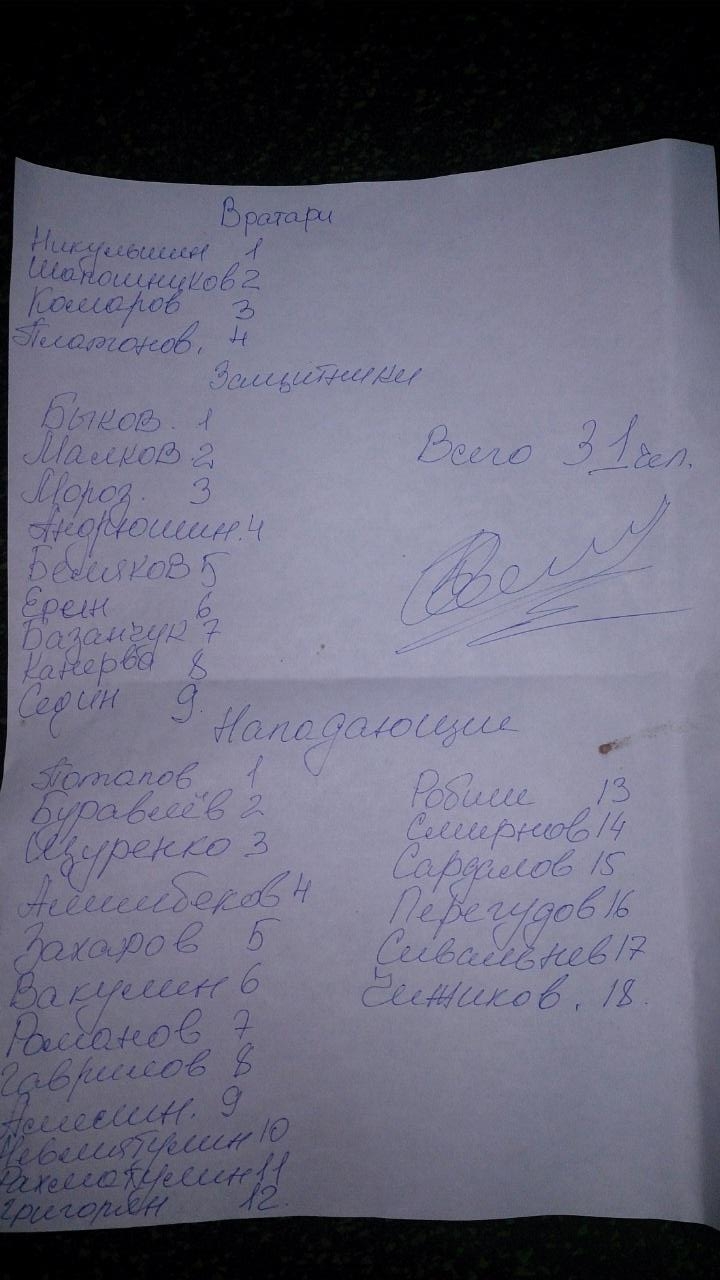 Вратари
Никульшин 1
Шапошников 2
Комаров 3
Платонов. 4
Защитники
Быков. 1
Малков. 2
Мороз. 3
Андрюшин. 4
Беляков 5
Ерин 6
Базанчук 7
Канерва 8
Седин 9.
Всего 31 чел.
Нападающие
Потапов 1
Буравлёв 2
Цыуренко 3
Алимбеков 4
Захаров 5
Вакулин 6
Романов 7
Гаврилов 8
9
10
Рахматулин 11
Григорян 12.
13
Смирнов 14
Сардалов 15
Перегудов 16
17
Чижиков. 18.